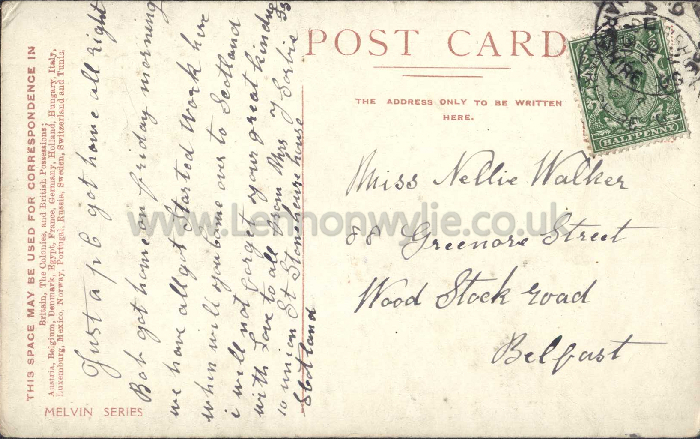 POST CARD
THE ADDRESS ONLY TO BE WRITTEN
HERE.
THIS SPACE MAY BE USED FOR CORRESPONDENCE IN
Britain, The Colonies, and British Possessions;
Austria, Belgium, Denmark, Egypt, France, Germany, Holland, Hungary, Italy,
Luxemburg, Mexico, Norway, Portugal, Russia, Sweden, Switzerland and Tunis.
Just a p c got home all right
Bob got home on friday morning
we have all got started work here
when will you come over to Scotland
i will not forget your great kindness
with love to all from Mrs J
10 union St Stonehouse
Scotland
Miss Nellie Walker
88 Greenore Street
Wood Stock road
Belfast
HALFPENNY
MELVIN SERIES
www.Lennonwylie.co.uk